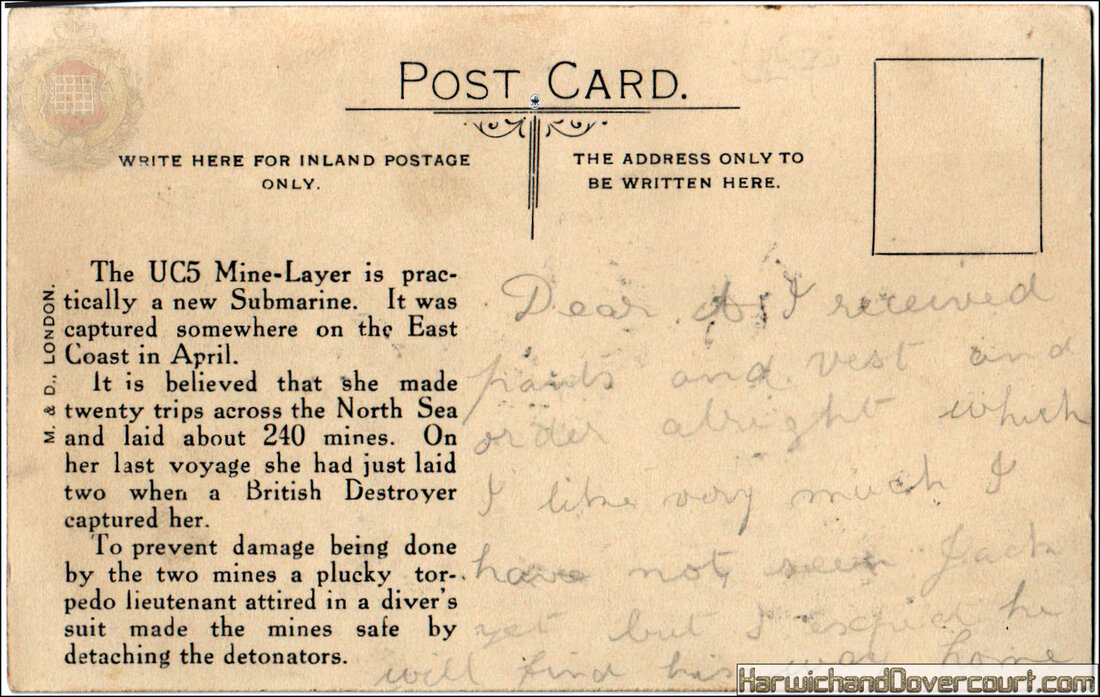 POST CARD.
WRITE HERE FOR INLAND POSTAGE
ONLY.
THE ADDRESS ONLY TO
BE WRITTEN HERE.
M. & D., LONDON.
The UC5 Mine-Layer is prac-
tically a new Submarine. It was
captured somewhere on the East
Coast in April.
It is believed that she made
twenty trips across the North Sea
and laid about 240 mines. On
her last voyage she had just laid
two when a British Destroyer
captured her.
To prevent damage being done
by the two mines a plucky tor-
pedo lieutenant attired in a diver's
suit made the mines safe by
detaching the detonators.
Dear I received
pants and vest and
order alright which
I like very much I
have not seen Jack
yet but I expect he
will find his way home
HarwichandDovercourt.com